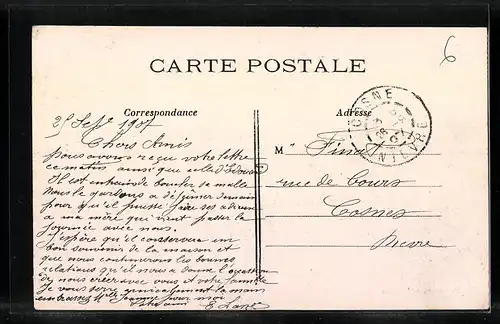 6
CARTE POSTALE
Correspondance
Adresse
COSNE
NIÈVRE
25 Sept 1907
Chers Amis
nous avons reçu votre lettre
ce matin ainsi que celle d'
Il est entrain de boucler sa malle
Nous le gardons à déjeuner demain
pour qu'il puisse faire ses adieux
à ma mère qui vient passer la
journée avec nous.
J'espère qu'il conservera un
bon souvenir de la maison et
que nous continuerons les bonnes
relations qu'il nous a donné l'occasion
de nous créer avec vous et votre famille
Je vous serre amicalement la main
embrassez Mlle Jeanne pour moi
Votre ami
E.
M Finat
rue de Cours
Cosnes
Nievre